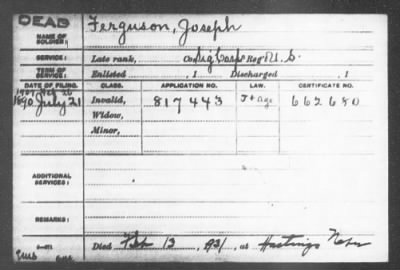 DEAD
NAME OF SOLDIER: Ferguson, Joseph
SERVICE: Late rank, Co. Sig Corps Reg't U.S.
TERM OF SERVICE: Enlisted , 1 Discharged , 1
DATE OF FILING. CLASS. APPLICATION NO. LAW. CERTIFICATE NO.
1907 Feb 26
1890 July 21 Invalid, 817443 J + age 662680
Widow,
Minor,
ADDITIONAL SERVICES:
REMARKS:
Died Feb 13, 1931, at Hastings Nebr